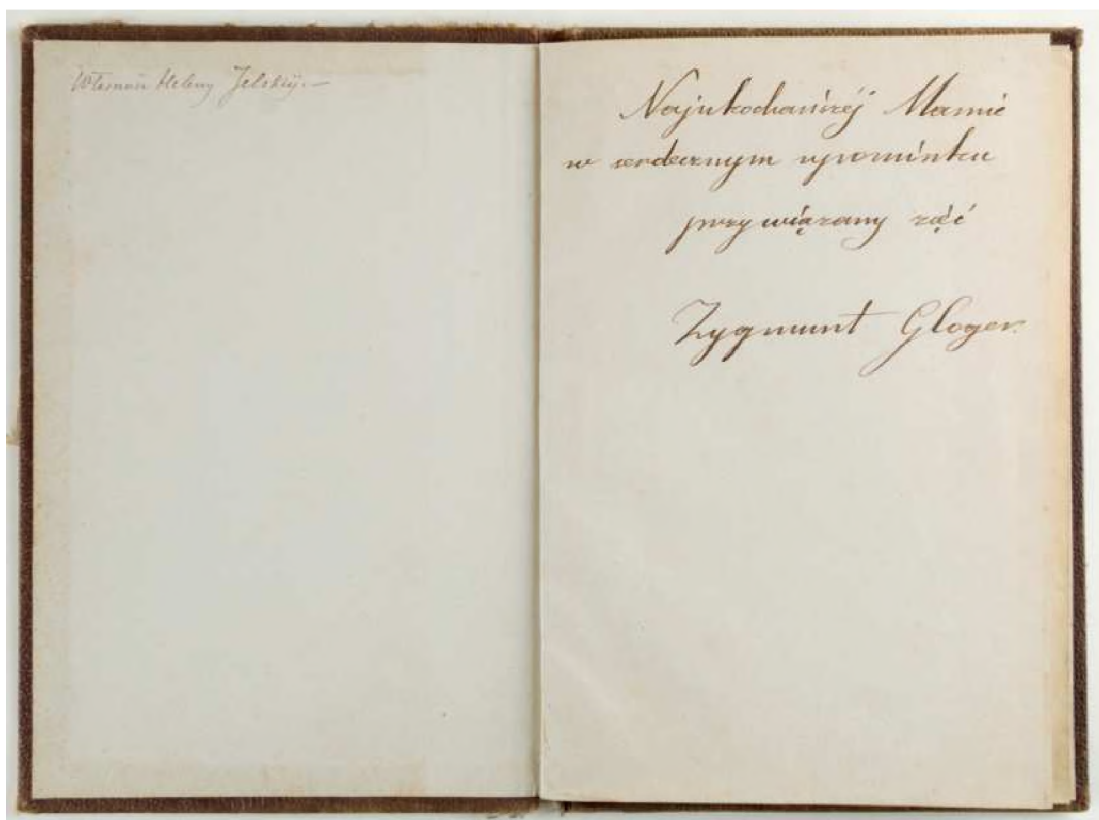 Własność Heleny Jelskiéj.—
Najukochańszéj Mamie
w serdecznym upominku
przywiązany zięć
Zygmunt Gloger.